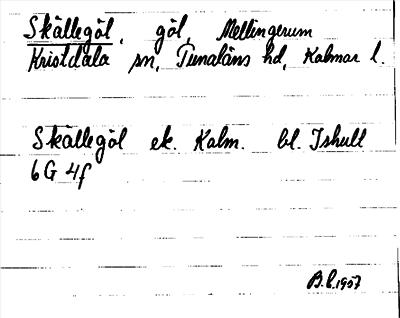 Skällegöl, göl, Mellingerum
Kristdala sn, Tunaläns hd, Kalmar l.
Skällegöl ek. Kalm. bl. Ishult
6G 4f
B.L. 1957